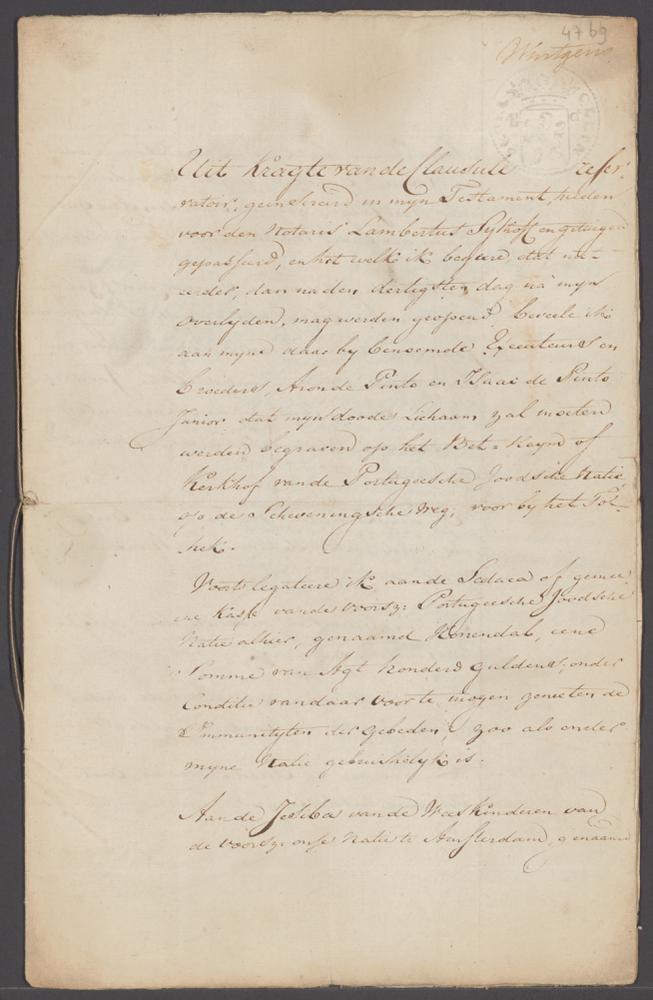 4769
Wurtgens
Uit Kragte van de Clausule reser-
vatoir, geinsereerd in myn Testament, heden
voor den Notaris Lambertus Sythoff en getuigen
gepasseerd, en het welk ik begeere, dat niet
eerder, dan na den dertigsten dag na myn
overlyden, mag werden geopend, beveele ik
aan myne daar by benoemde Executeurs en
broeders, Aron de Pinto en Isaac de Pinto
Junior, dat myn doode Lichaam zal moeten
werden begraven op het Bet-Haym of
Kerkhof van de Portugeesche Joodsche Natie,
op de Scheveningsche Weg, voor by het Tol-
hek.
Voorts legateere ik aan de Sedaca of gemee-
ne Kasse van de voorsz: Portugeesche Joodsche
Natie alhier, genaamd Honendal, eene
Somme van Agt honderd guldens, onder
Conditie van daar voor te mogen genieten de
Immunityten der gebeden, zoo als onder
myne Natie gebruikelyk is.
Aan de Jesiba van de Weeskinderen van
de voorsz: onse Natie te Amsterdam, genaamd